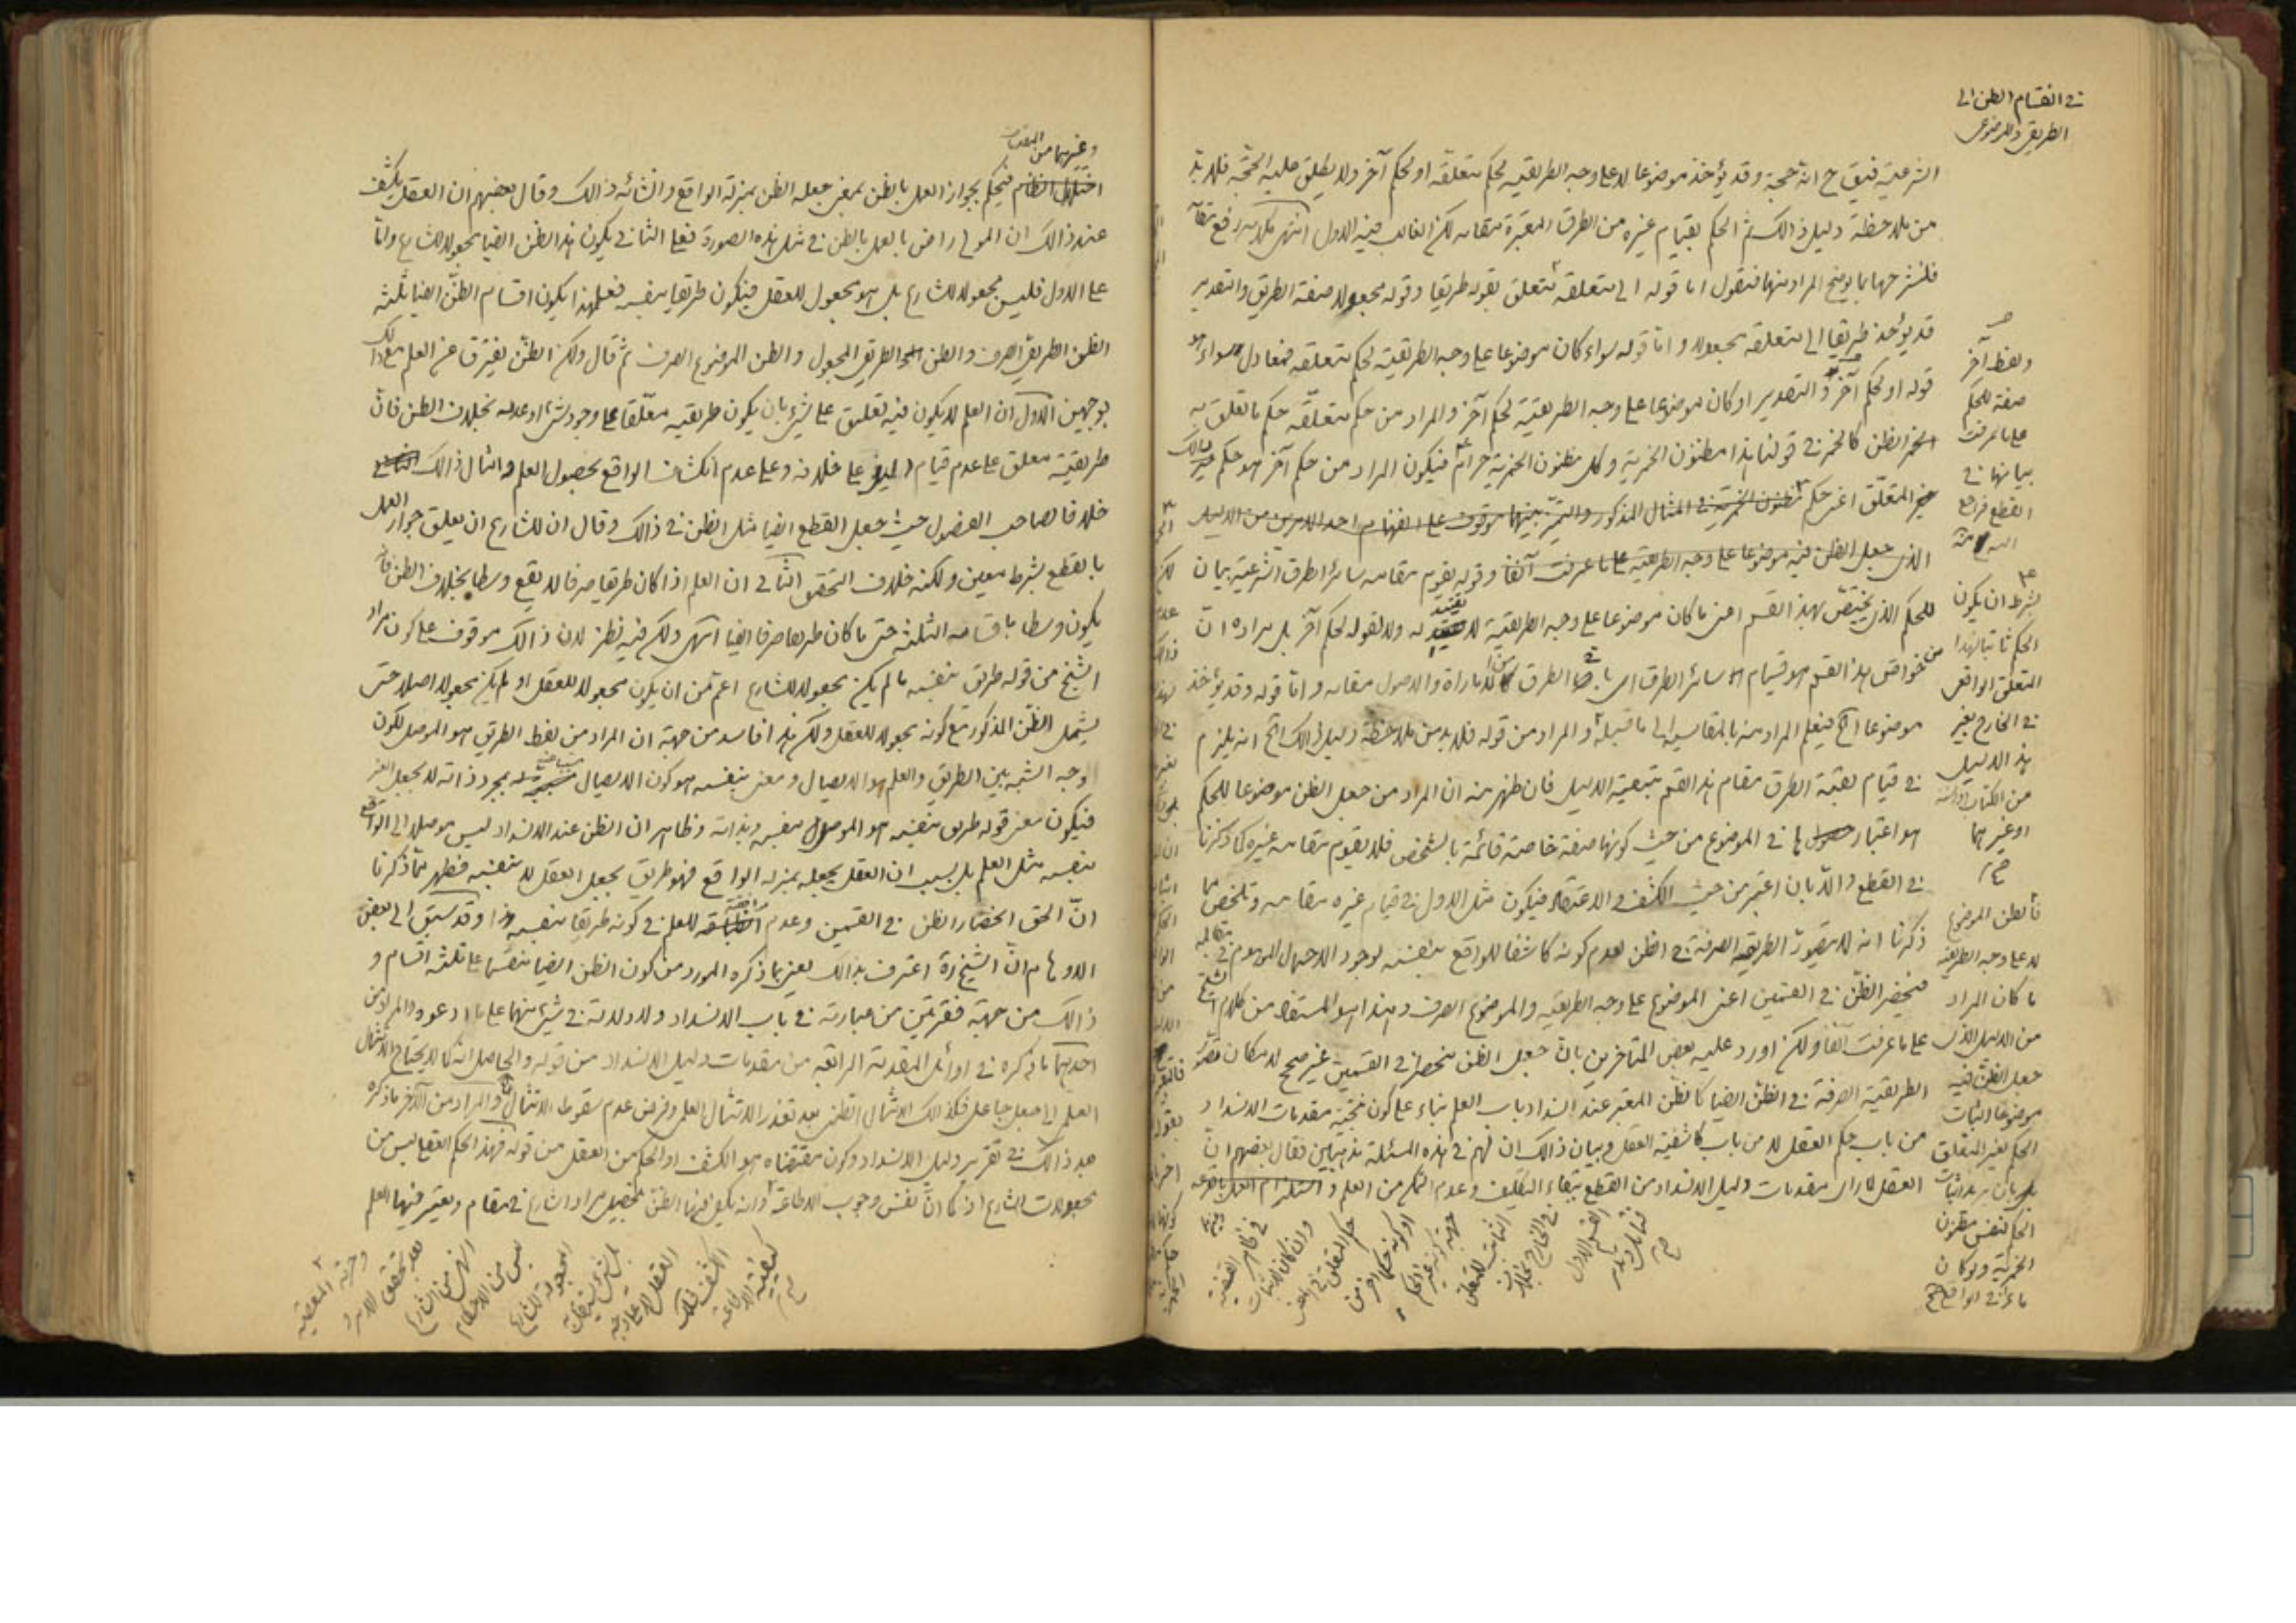 في انقسام الظن الى
الطريقي والموضوعي
الشرعية فيق ح انه حجة وقد يؤخذ موضوعا لا على وجه الطريقية لحكم متعلقه او لحكم آخر ولا يطلق عليه الحجة فلا بد
من ملاحظة دليل ذالك ثم الحكم بقيام غيره من الطرق المعتبرة مقامه لكن الغالب فيه الاول انتهى كلامه رفع مقامه
فلنشرحها بما يوضح المراد منها فنقول اما قوله الى متعلقه متعلق بقوله طريقا وقوله مجعولا صفة الطريق والتقدير
قد يؤخذ طريقا الى متعلقه مجعولا واما قوله سواء كان موضوعا على وجه الطريقية لحكم متعلقه فمعادل سواء هو
قوله او لحكم آخر والتقدير او كان موضوعا على وجه الطريقية لحكم آخر والمراد من حكم متعلقه حكم ما تعلق به
الظن كالخمر في قولنا هذا مظنون الخمرية وكل مظنون الخمرية حرام فيكون المراد من حكم آخر هو حكم
المتعلق اعني حكم مظنون الخمرية في المثال المذكور والتميز بينهما موقوف على انفهام احد الامرين من الدليل
الذي جعل الظن فيه موضوعا على وجه الطريقية على ما عرفت آنفا وقوله يقوم مقامه سائر الطرق الشرعية بيان
للحكم الذي يختص بهذا القسم اعني ما كان موضوعا على وجه الطريقية لا تقييد له ولا لقوله لحكم آخر بل مراده ان
من خواص هذا القسم هو قيام سائر الطرق اي باقي الطرق من الامارة والاصول مقامه واما قوله وقد يؤخذ
موضوعا الخ فيعلم المراد منه بالمقايسة الى ما قبله والمراد من قوله فلا بد من ملاحظة دليل ذالك الخ انه يلزم
في قيام بقية الطرق مقام هذا القسم بتبعية الدليل فان ظهر منه ان المراد من جعل الظن موضوعا للحكم
هو اعتبارها في الموضوع من حيث كونها صفة خاصة قائمة بالشخص فلا يقوم مقامه غيره كما ذكرنا
في القطع والا بان اعتبر من حيث الكشف والاعتقاد فيكون مثل الاول في قيام غيره مقامه وتلخص مما
ذكرنا انه لا يتصور الطريقية الصرفة في الظن لعدم كونه كاشفا للواقع بنفسه لوجود الاحتمال الموهوم في مقابله
فينحصر الظن في القسمين اعني الموضوع على وجه الطريقية والموضوع الصرف وهذا هو المستفاد من كلام الشيخ
على ما عرفت آنفا ولكن اورد عليه بعض المتأخرين بان جعل الظن منحصرا في القسمين غير صحيح لامكان
الطريقية الصرفة في الظن ايضا كالظن المعتبر عند انسداد باب العلم بناء على كون نتيجة مقدمات الانسداد
من باب حكم العقل لا من باب كاشفية العقل وبيان ذالك ان لهم في هذه المسئلة مذهبين فقال بعضهم ان
العقل لما رأى مقدمات دليل الانسداد من القطع ببقاء التكليف وعدم التمكن من العلم
ولفظ آخر
صفة للحكم
على ما عرفت
بيانها في
القطع فراجع
اليه منه
بشرط ان يكون
الحكم ثابتا لهذا
المتعلق الواقعي
في الخارج بغير
هذا الدليل
من الكتاب والسنة
او غيرهما
صح
فالظن الموضوع
لا على وجه الطريقية
ما كان المراد
من الدليل الذي
جعل الظن فيه
موضوعا اثبات
الحكم لغير المتعلق
بل بان يراد اثبات
الحكم لنفس مظنون
الخمرية ولو كان
ماء في الواقع صح
وغيرهما من المقدمات
فيحكم بجواز العمل بالظن بمعنى جعله الظن بمنزلة الواقع وانشائه ذالك وقال بعضهم ان العقل يكشف
عند ذالك ان المولى راض بالعمل بالظن في مثل هذه الصورة فعلى الثاني يكون هذا الظن ايضا مجعولا للشارع واما
على الاول فليس مجعولا للشارع بل هو مجعول للعقل فيكون طريقا بنفسه فعلى هذا يكون اقسام الظن ايضا ثلثة
الظن الطريقي الصرف والظن الطريقي المجعول والظن الموضوع الصرف ثم قال ولكن الظن يفترق عن العلم مع ذالك
بوجهين الاول ان العلم لا يكون فيه تعليق على شيء بان يكون طريقيته معلقا على وجود شيء او عدمه بخلاف الظن فان
طريقيته معلق على عدم قيام الدليل على خلافه وعلى عدم انكشاف الواقع بحصول العلم وامثال ذالك
خلافا لصاحب الفصول حيث جعل القطع ايضا مثل الظن في ذالك وقال ان للشارع ان يعلق جواز العمل
بالقطع بشرط معين ولكنه خلاف التحقق الثاني ان العلم اذا كان طريقا صرفا لا يقع وسطا بخلاف الظن فانه
يكون وسطا باقسامه الثلثة حتى ما كان طريقا صرفا ايضا انتهى ولكن فيه نظر لان ذالك موقوف على كون مراد
الشيخ من قوله طريق بنفسه ما لم يكن مجعولا للشارع اعم من ان يكون مجعولا للعقل او لم يكن مجعولا اصلا حتى
يشمل الظن المذكور مع كونه مجعولا للعقل ولكن هذا فاسد من جهة ان المراد من لفظ الطريق هو الموصل لكون
وجه الشبه بين الطريق والعلم هو الايصال ومعنى بنفسه هو كون الايصال بمجرد ذاته لا بجعل الغير
فيكون معنى قوله طريق بنفسه هو الموصل بنفسه وبذاته وظاهر ان الظن عند الانسداد ليس موصلا الى الواقع
بنفسه مثل العلم بل بسبب ان العقل يجعله بمنزلة الواقع فهو طريق بجعل العقل لا بنفسه فظهر مما ذكرنا
ان الحق انحصار الظن في القسمين وعدم موافقته للعلم في كونه طريقا بنفسه هذا وقد سبق الى بعض
الاوهام ان الشيخ ره اعترف بذالك يعني بما ذكره المورد من كون الظن ايضا منقسما على ثلثة اقسام و
ذالك من جهة فقرتين من عبارته في باب الانسداد ولا دلالة في شيء منهما على ما ادعوه والمراد من
احديهما ما ذكره في اوائل المقدمة الرابعة من مقدمات دليل الانسداد من قوله والحاصل انه كما لا يحتاج الامتثال
العلمي الى جعل جاعل فكذالك الامتثال الظني بعد تعذر الامتثال العلمي وفرض عدم سقوط الامتثال والمراد من الآخر ما ذكره
بعد ذالك في تقرير دليل الانسداد وكون مقتضاه هو الكشف او الحكم من العقل من قوله فهذا الحكم العقلي ليس من
مجعولات الشارع اذ كما ان نفس وجوب الاطاعة وانه يكفي فيها الظن بتحصيل مراد الشارع في مقام ويعتبر فيها العلم
وحرمة المعصية
بعد تحقق الامر و
النهي من الشارع
ليس من الاحكام
المجعولة للشارع
بل شيء يستقل به
العقل لا على وجه
الكشف فكذلك
كيفية الاطاعة
صح